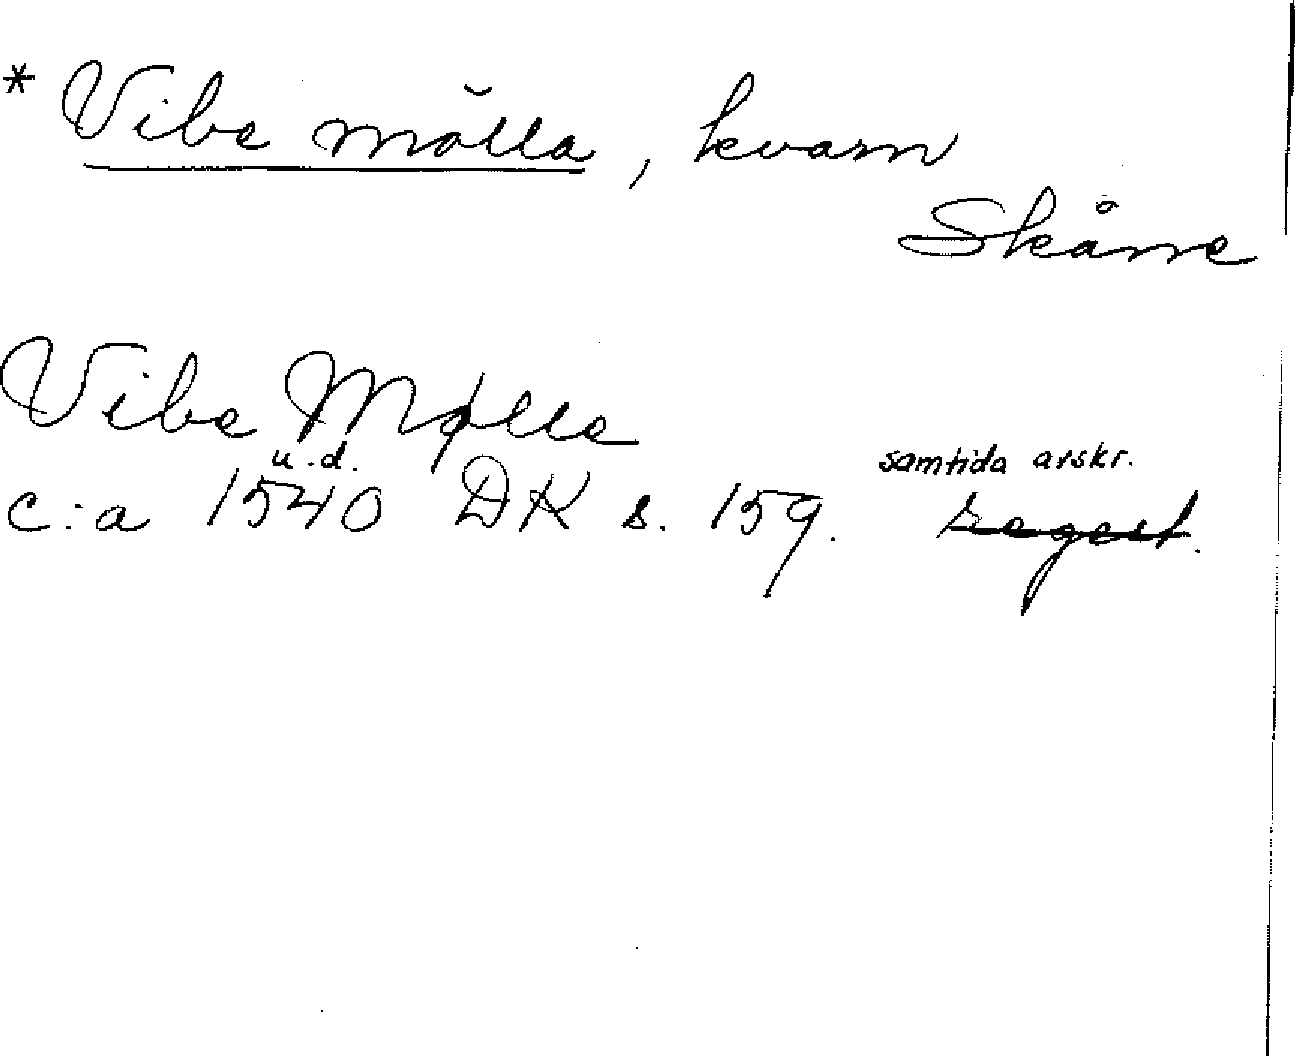 * Vibe mölla, kvarn
Skåne
Vibe Mølle
u.d.
samtida avskr.
c:a 1540 DK s. 159. regest.